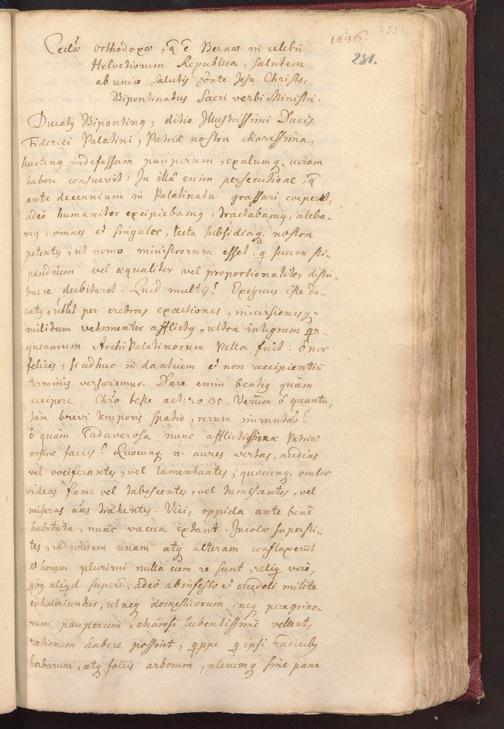 1636.
281.
orthodoxæ, q̃ ẽ Bernæ in celebri
Helvetiorum Republica, salutem
ab unico salutis fonte Jesu Christo,
Bipontinatus Sacri verbi Ministri.
Ducatq Bipontinq, ditio Illustrissimi Ducis
Federici Palatini, Patria nostra charissima,
hactenq indefessam pauperum, exulumq curam
habere consuevit: In illa enim persecutione, q̃
ante decennium in Palatinatu grassari coeperat,
adeò humaniter excipiebamq, tractabamq, aleba-
mq, omnes et singulos, tecta subsidiaq nostra
petentes, ut nemo ministrorum esset, q secum sti-
pendium vel æqualiter vel proportionaliter distri-
buere dubitaret. Quid multis? Exiguus iste du-
catq, licet per crebras exactiones, incursionesq
militum vehementer afflictq, ultra integrum qn-
quennium Archi Palatinorum Pella fuit. O nos
felices, si adhuc in dantium et non recipientium
terminis versaremur. Dare enim beatiq quam
accipere Chro teste act. 20. 35. Verùm ô quanta,
tam brevi temporis spatio, rerum immutatio?
O quàm cadaverosa nunc afflictissimæ Patriæ
nostræ facies? Quocunq n. aures vertas, audias
vel vociferantes, vel lamentantes; quocunq oculos
videas fame vel tabescentes, vel tumescentes, vel
miseras trahentes. Vici, oppida ante bene
habitata, nunc vacua extant. Incolæ supersti-
tes, in urbem unam atq alteram confluxerunt
et horum plurimi nulla cum re sunt, reliq verò,
qbq aliqd supere, adeò ab infesto et crudeli milite
exhauriuntur, ut neq domesticorum, neq peregrino-
rum, pauperum, etiamsi lubentissimè vellent,
rationem habere possint, qppe q ipsi radicibq
herbarum, atq foliis arborum, plerumq sine pane